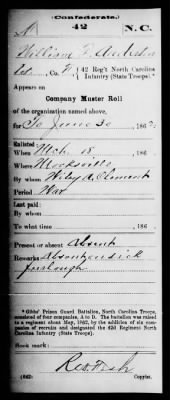 (Confederate.)
42 N.C.
William
Co. F, 42 Reg't North Carolina
Infantry (State Troops).*
Appears on
Company Muster Roll
of the organization named above,
for To June 30, 186
Enlisted:
When Mch 18, 186
Where Mocksville
By whom Wiley A. Clement
Period War
Last paid:
By whom
To what time , 186
Present or absent Absent
Remarks: Absent on sick
furlough
*Gibbs' Prison Guard Battalion, North Carolina Troops,
consisted of four companies, A to D. The battalion was raised
to a regiment about May, 1862, by the addition of six com-
panies of recruits and designated the 42d Regiment North
Carolina Infantry.
Book mark:
(642) Copyist.